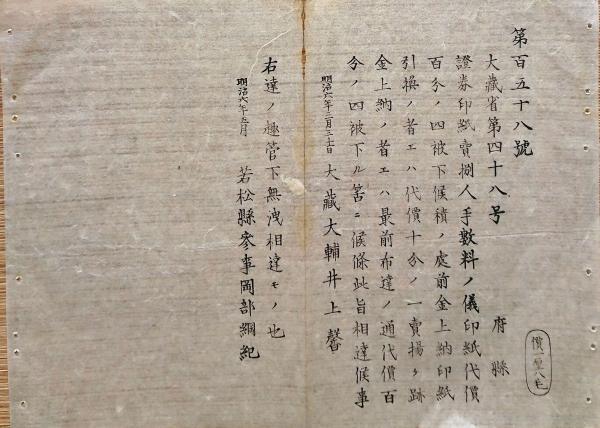 第百五十八號
大藏省第四十八号
府縣
證券印紙賣捌人手數料ノ儀印紙代價
百分ノ四被下候積ノ處前金上納印紙
引換ノ者エハ代價十分ノ一賣揚ケ跡
金上納ノ者エハ最前布達ノ通代價百
分ノ四被下ル筈ニ候條此旨相達候事
明治六年三月三十日 大藏大輔井上馨
右達ノ趣管下無洩相達モノ也
明治六年五月 若松縣參事岡部綱紀
價一厘八毛